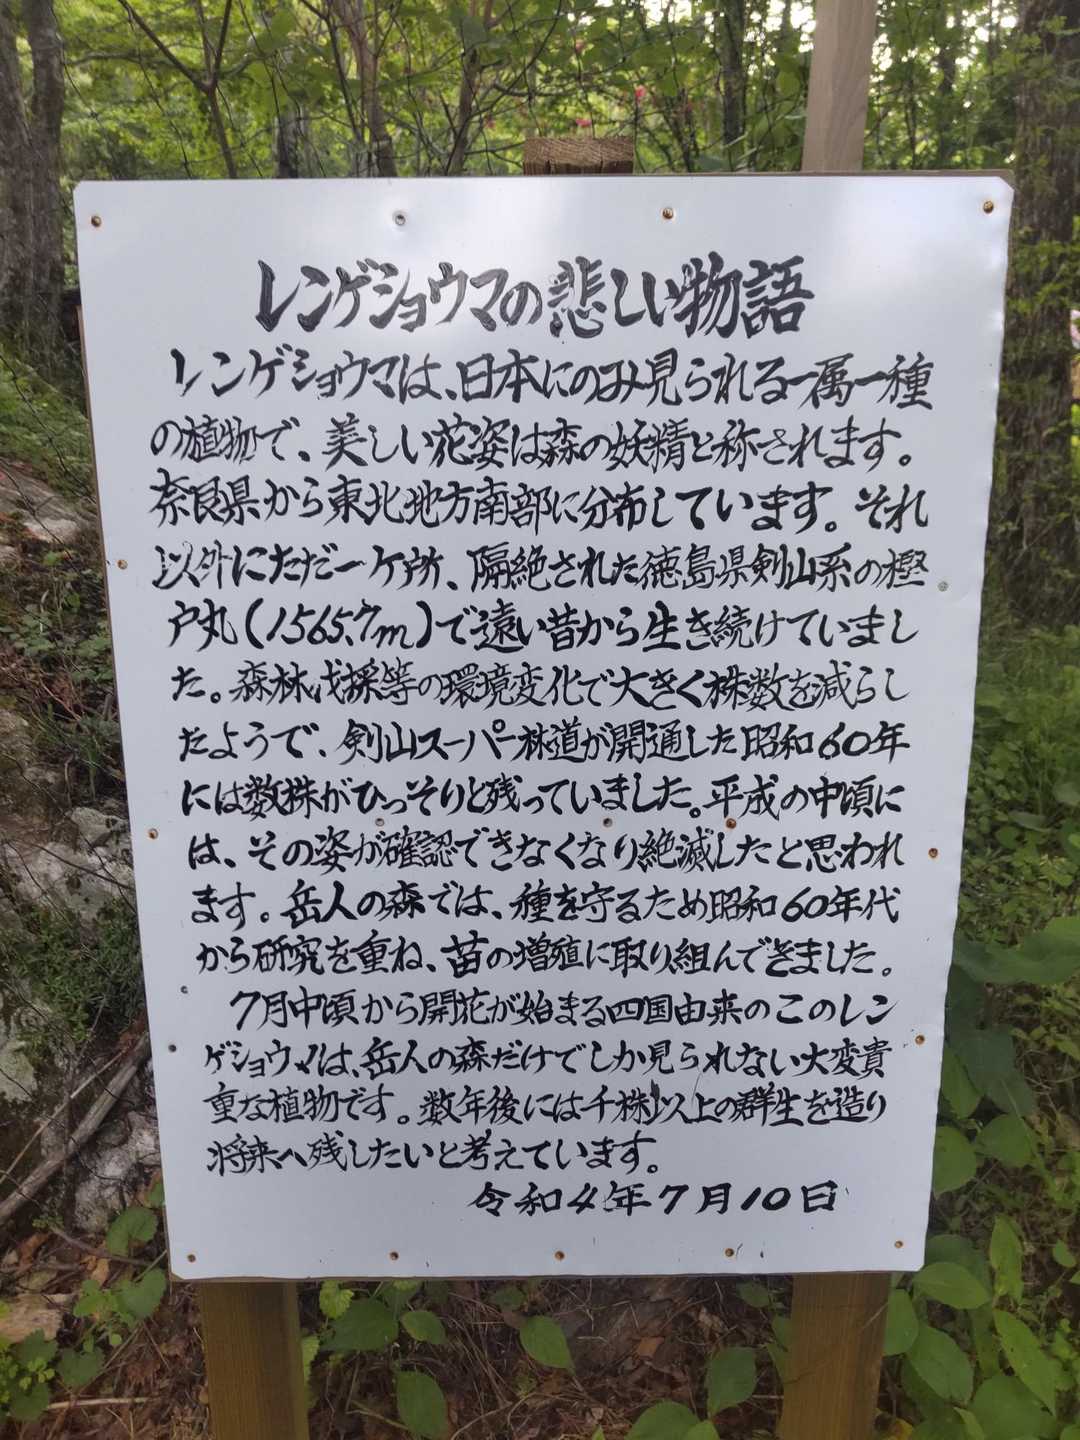 レンゲショウマの悲しい物語
レンゲショウマは、日本にのみ見られる一属一種
の植物で、美しい花姿は森の妖精と称されます。
奈良県から東北地方南部に分布しています。それ
以外にただ一ヶ所、隔絶された徳島県剣山系の樫
戸丸(1565.7m)で遠い昔から生き続けていまし
た。森林伐採等の環境変化で大きく株数を減らし
たようで、剣山スーパー林道が開通した昭和60年
には数株がひっそりと残っていました。平成の中頃に
は、その姿が確認できなくなり絶滅したと思われ
ます。岳人の森では、種を守るため昭和60年代
から研究を重ね、苗の増殖に取り組んできました。
7月中頃から開花が始まる四国由来のこのレン
ゲショウマは、岳人の森だけでしか見られない大変貴
重な植物です。数年後には千株以上の群生を造り
将来へ残したいと考えています。
令和4年7月10日